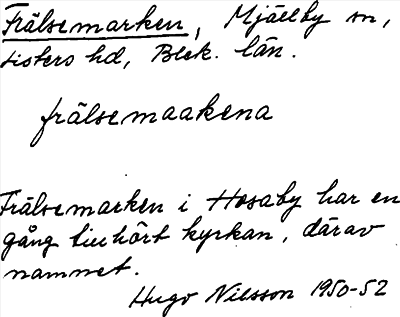 Frälsemarken, Mjällby sn,
Listers hd, Blek. län.
frälsemaakena
Frälsemarken i Hosaby har en
gång tillhört kyrkan, därav
namnet.
Hugo Nilsson 1950-52